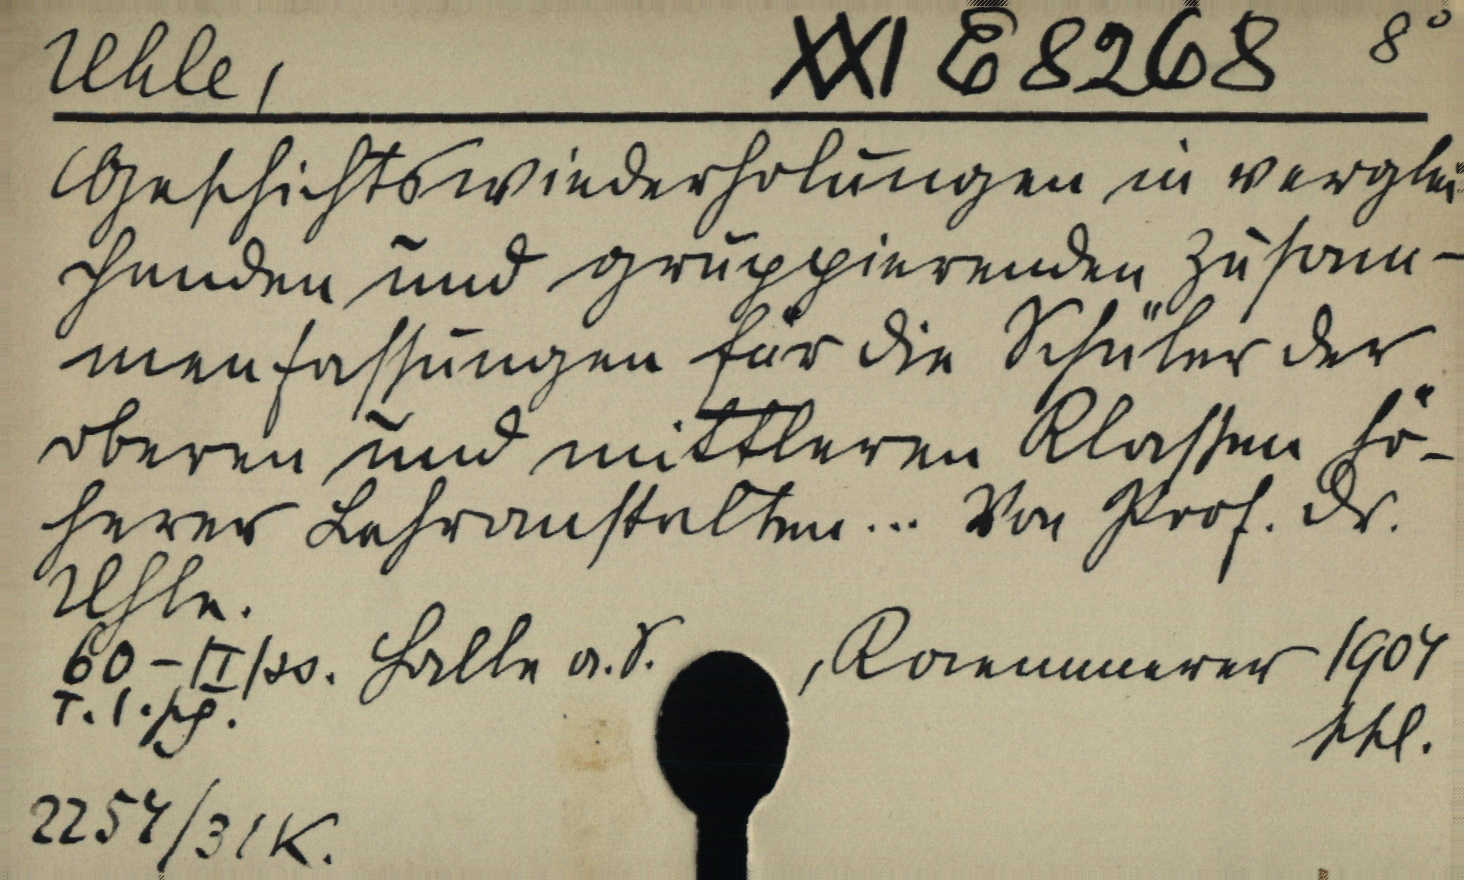 Uhle, XXI E 8268 8°
Geschichtswiederholungen in verglei-
chenden und gruppierenden Zusam-
menfassungen für die Schüler der
oberen und mittleren Klassen hö-
herer Lehranstalten... Von Prof. Dr.
Uhle.
60-II/ss. Halle a. S., Kaemmerer 1904
T. I. pg. ppl.
2254/31K.